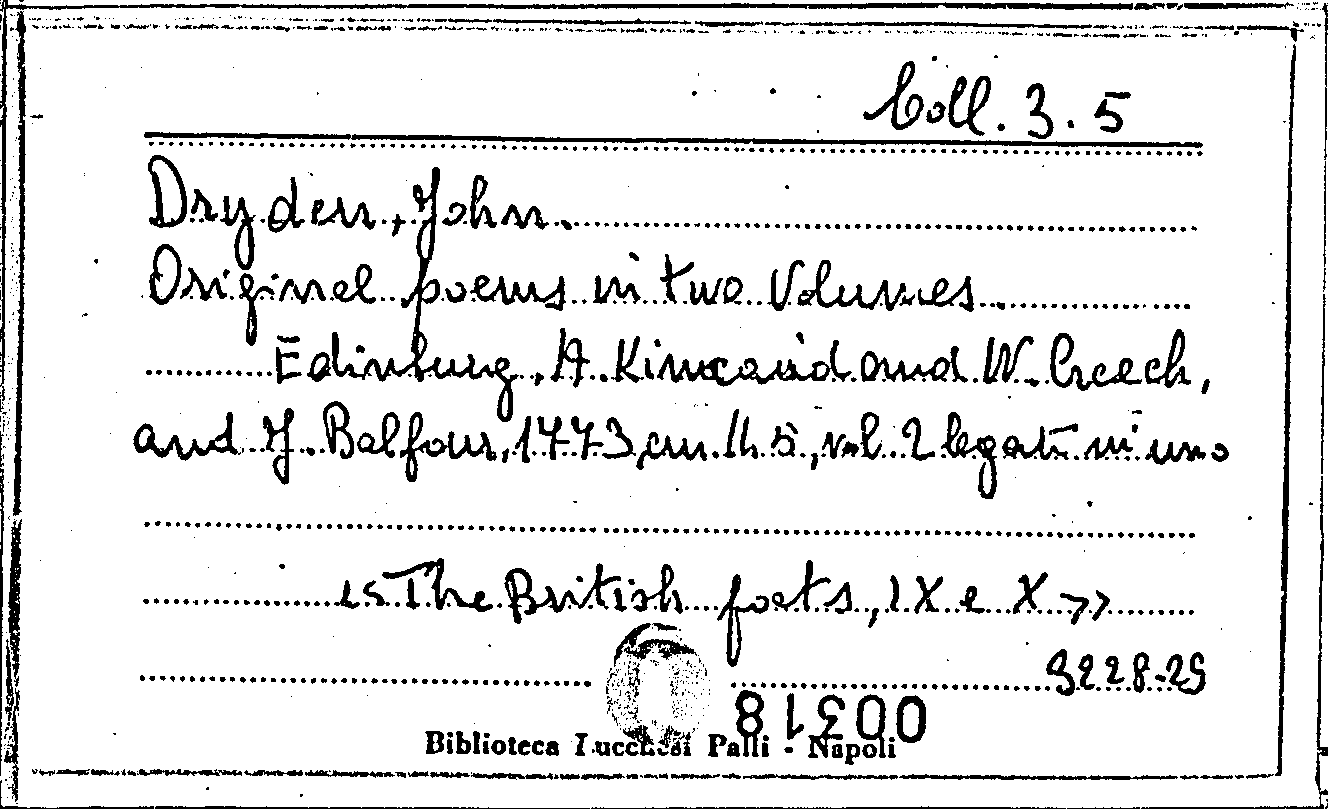 Coll. 3. 5
Dryden, John.
Original poems in two Volumes.
Edinburg, A. Kincaid and W. Creech,
and J. Balfour, 1773, cm. 14.5, vol. 2 legati in uno
«The British poets, IX e X»
9228-29
00318
Biblioteca Lucchesi Palli - Napoli